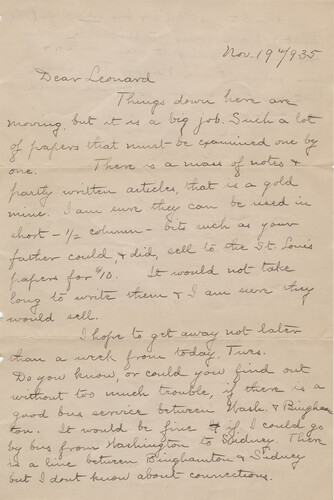 Nov. 19th/935
Dear Leonard
Things down here are
moving, but it is a big job. Such a lot
of papers that must be examined one by
one. There is a mass of notes &
partly written articles, that is a gold
mine. I am sure they can be used in
short - 1/2 column - bits such as your
father could & did, sell to the St. Louis
papers for $10. It would not take
long to write them & I am sure they
would sell.
I hope to get away not later
than a week from today. Tues.
Do you know, or could you find out
without too much trouble, if there is a
good bus service between Wash. & Bingham
ton. It would be fine if I could go
by bus from Washington to Sidney. There
is a line between Binghamton & Sidney
but I dont know about connections.